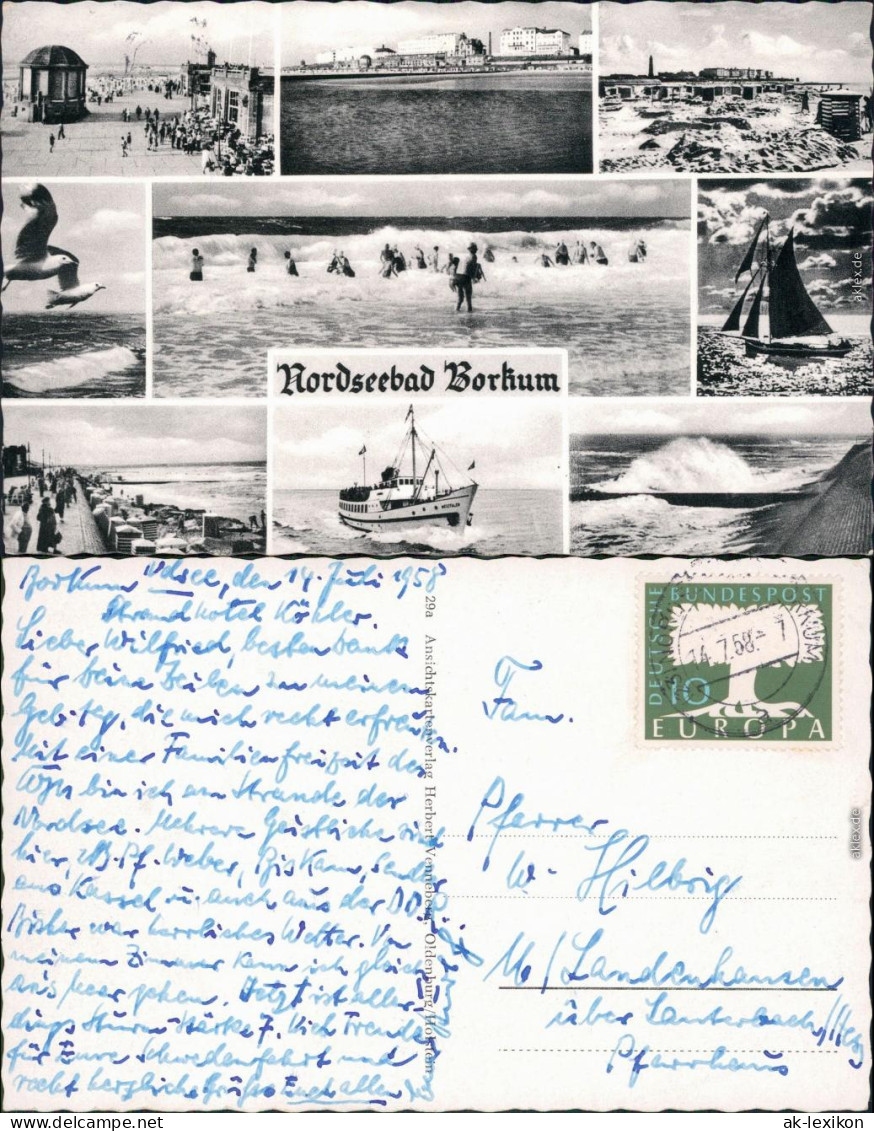 Nordseebad Borkum
Borkum Ndsee, den 14. Juli 1958
Strandhotel Köhler.
Lieber Wilfried, besten Dank
für Deine Zeilen zu meinem
Gebtag, die mich recht erfreuen.
Mit einer Familienfreizeit des
bin ich am Strande der
Nordsee. Mehrere Geistliche sind
hier, z.B. Pf. Weber, Biskam,
aus Kassel u. auch aus der DDR.
Bisher war herrliches Wetter. Von
meinem Zimmer kann ich gleich
aus Meer gehen. Jetzt ist aller
dings Sturm Stärke 7. Viel Freude
für Eure Schwedenfahrt und
recht herzliche Grüße Euch allen
29a Ansichtskartenverlag Herbert Venneberg, Oldenburg/Holstein
DEUTSCHE BUNDESPOST
10
EUROPA
14.7.58.-7
Fam.
Pfarrer
W. Hilbrig
16/Landenhausen
über Lauterbach/Hess
Pfarrhaus
aklex.de
aklex.de
ak-lexikon.de